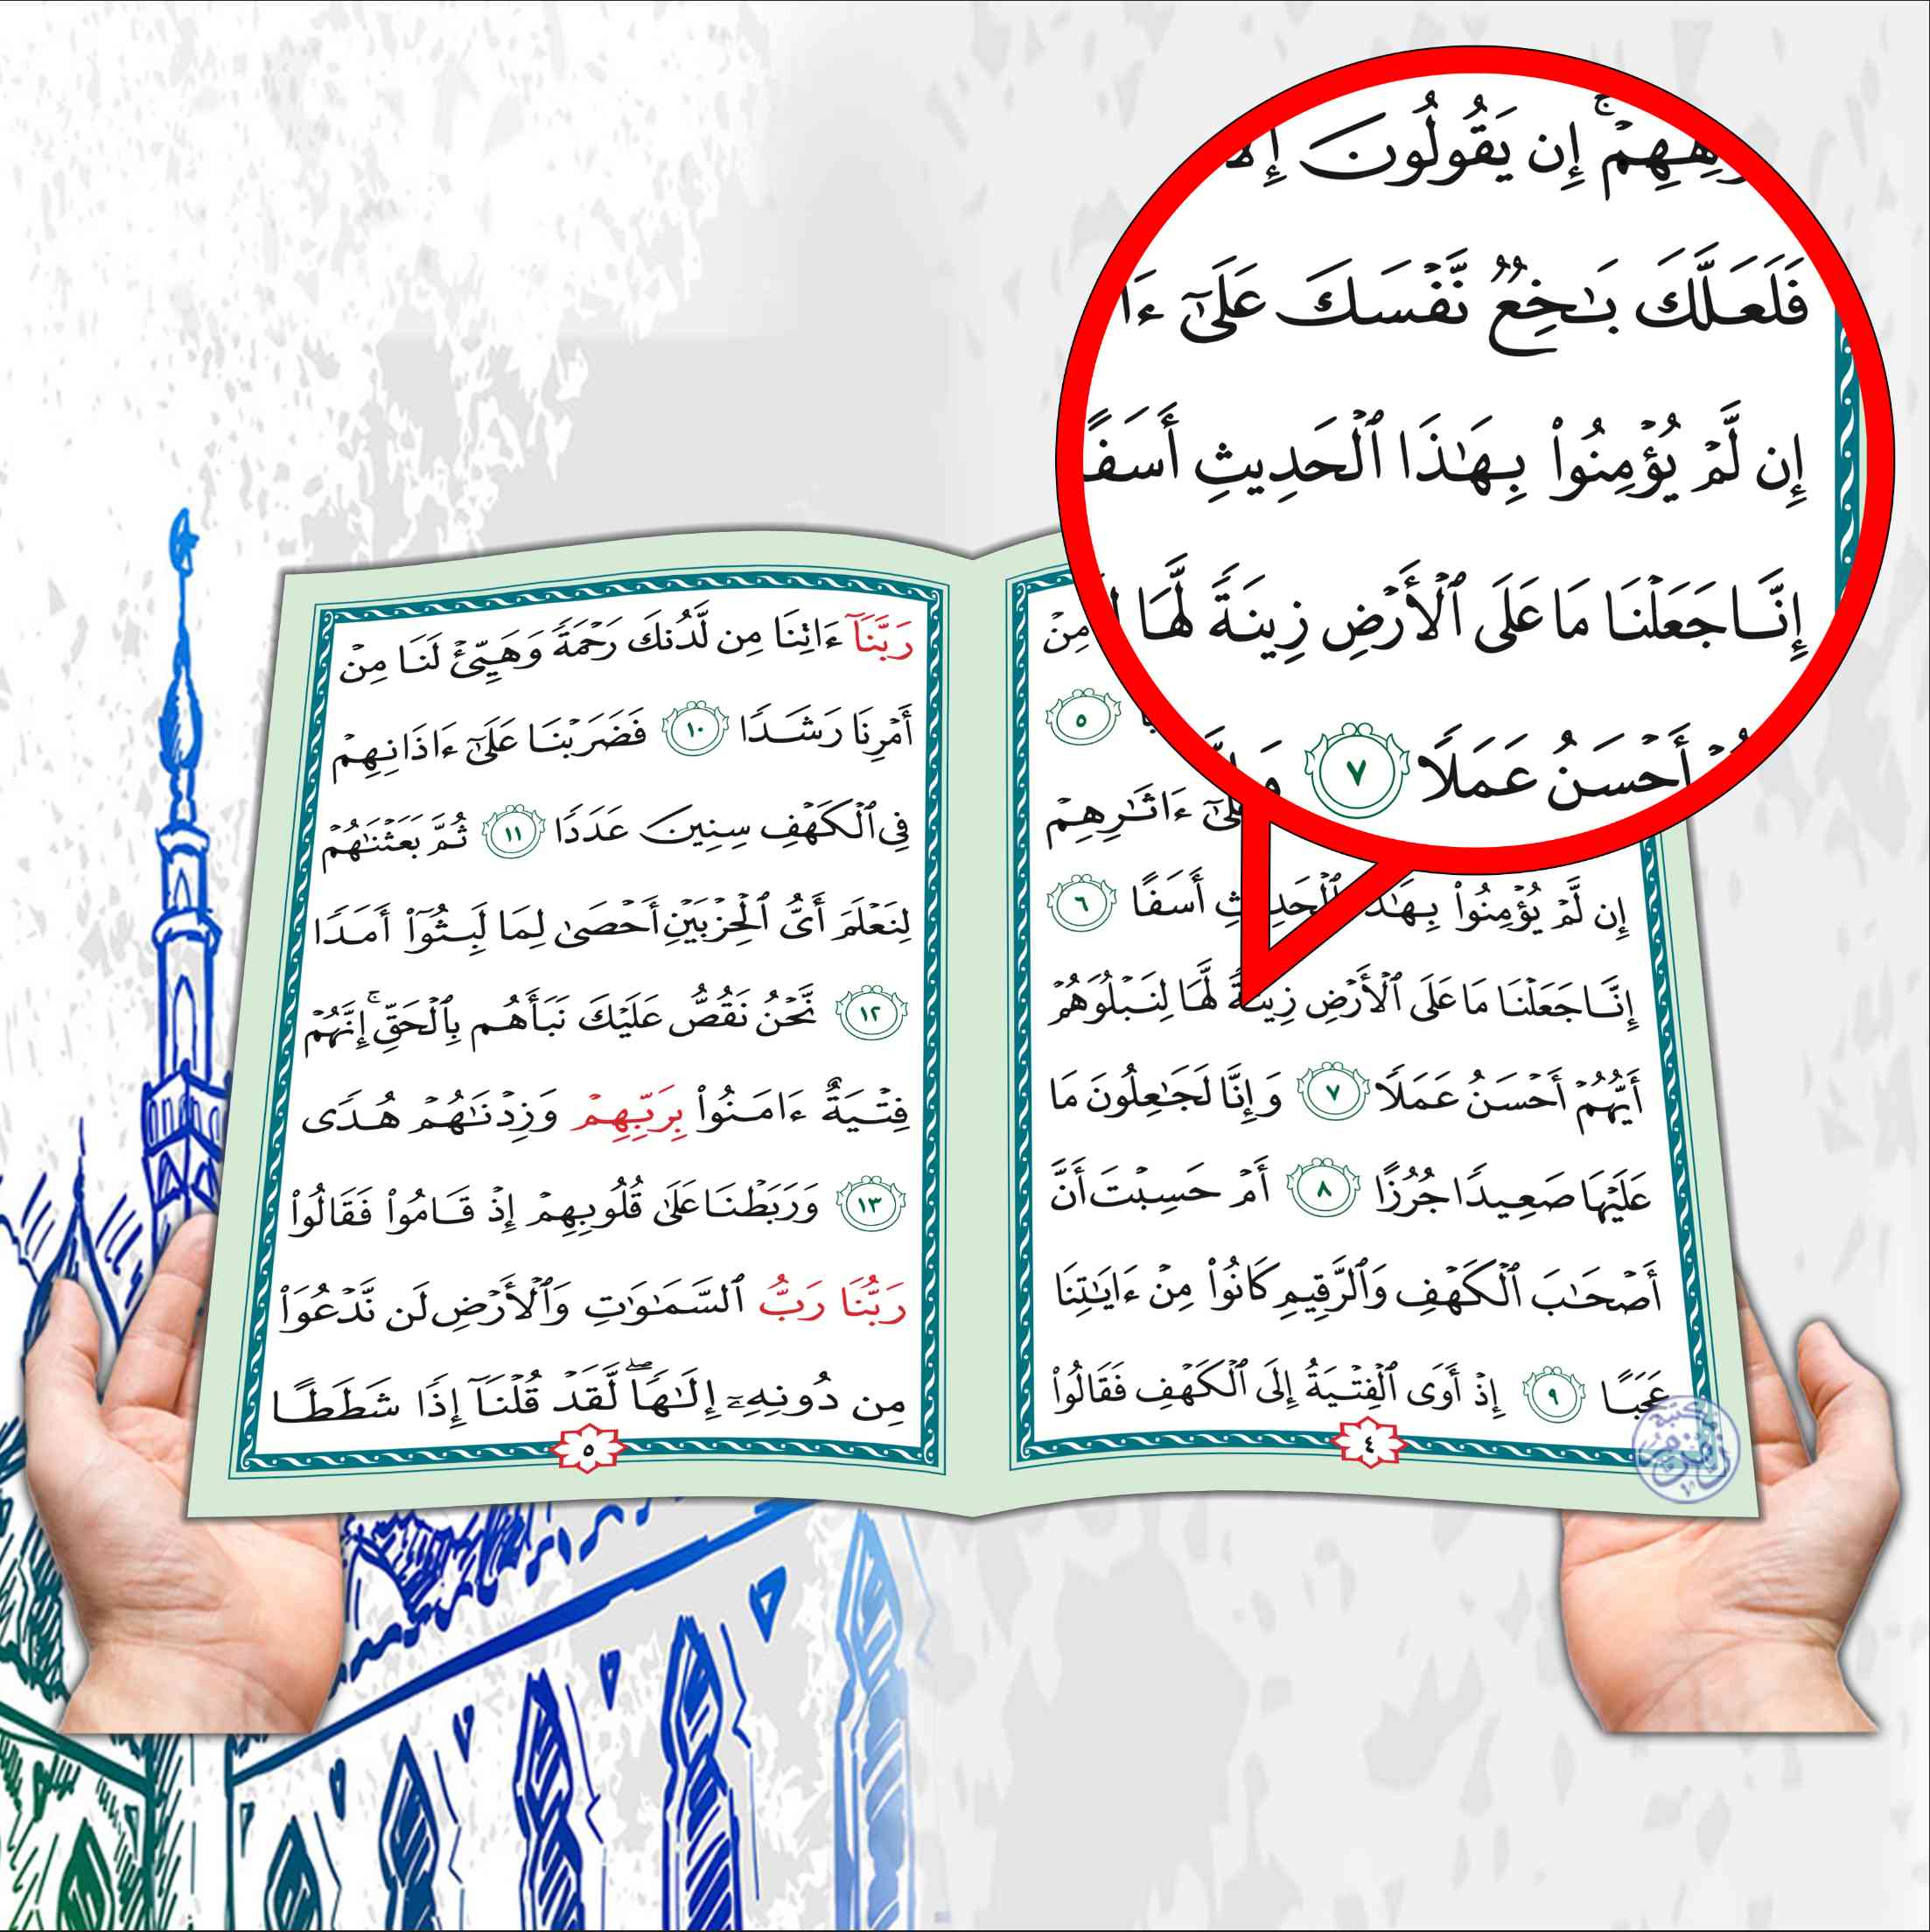 إِن يَقُولُونَ
فَلَعَلَّكَ بَـٰخِعٌ نَّفْسَكَ عَلَىٰٓ ءَا
إِن لَّمْ يُؤْمِنُوا۟ بِهَـٰذَا ٱلْحَدِيثِ أَسَفًا
إِنَّا جَعَلْنَا مَا عَلَى ٱلْأَرْضِ زِينَةً لَّهَا
أَحْسَنُ عَمَلًا ٧
مِنْ
٥
عَلَىٰٓ ءَاثَـٰرِهِمْ
إِن لَّمْ يُؤْمِنُوا۟ بِهَـٰذَا ٱلْحَدِيثِ أَسَفًا ٦
إِنَّا جَعَلْنَا مَا عَلَى ٱلْأَرْضِ زِينَةً لَّهَا لِنَبْلُوَهُمْ
أَيُّهُمْ أَحْسَنُ عَمَلًا ٧ وَإِنَّا لَجَـٰعِلُونَ مَا
عَلَيْهَا صَعِيدًا جُرُزًا ٨ أَمْ حَسِبْتَ أَنَّ
أَصْحَـٰبَ ٱلْكَهْفِ وَٱلرَّقِيمِ كَانُوا۟ مِنْ ءَايَـٰتِنَا
عَجَبًا ٩ إِذْ أَوَى ٱلْفِتْيَةُ إِلَى ٱلْكَهْفِ فَقَالُوا۟
٤
رَبَّنَآ ءَاتِنَا مِن لَّدُنكَ رَحْمَةً وَهَيِّئْ لَنَا مِنْ
أَمْرِنَا رَشَدًا ١٠ فَضَرَبْنَا عَلَىٰٓ ءَاذَانِهِمْ
فِى ٱلْكَهْفِ سِنِينَ عَدَدًا ١١ ثُمَّ بَعَثْنَـٰهُمْ
لِنَعْلَمَ أَىُّ ٱلْحِزْبَيْنِ أَحْصَىٰ لِمَا لَبِثُوٓا۟ أَمَدًا
١٢ نَّحْنُ نَقُصُّ عَلَيْكَ نَبَأَهُم بِٱلْحَقِّ ۚ إِنَّهُمْ
فِتْيَةٌ ءَامَنُوا۟ بِرَبِّهِمْ وَزِدْنَـٰهُمْ هُدًى
١٣ وَرَبَطْنَا عَلَىٰ قُلُوبِهِمْ إِذْ قَامُوا۟ فَقَالُوا۟
رَبُّنَا رَبُّ ٱلسَّمَـٰوَٰتِ وَٱلْأَرْضِ لَن نَّدْعُوَا۟
مِن دُونِهِۦٓ إِلَـٰهًا ۖ لَّقَدْ قُلْنَآ إِذًا شَطَطًا
٥